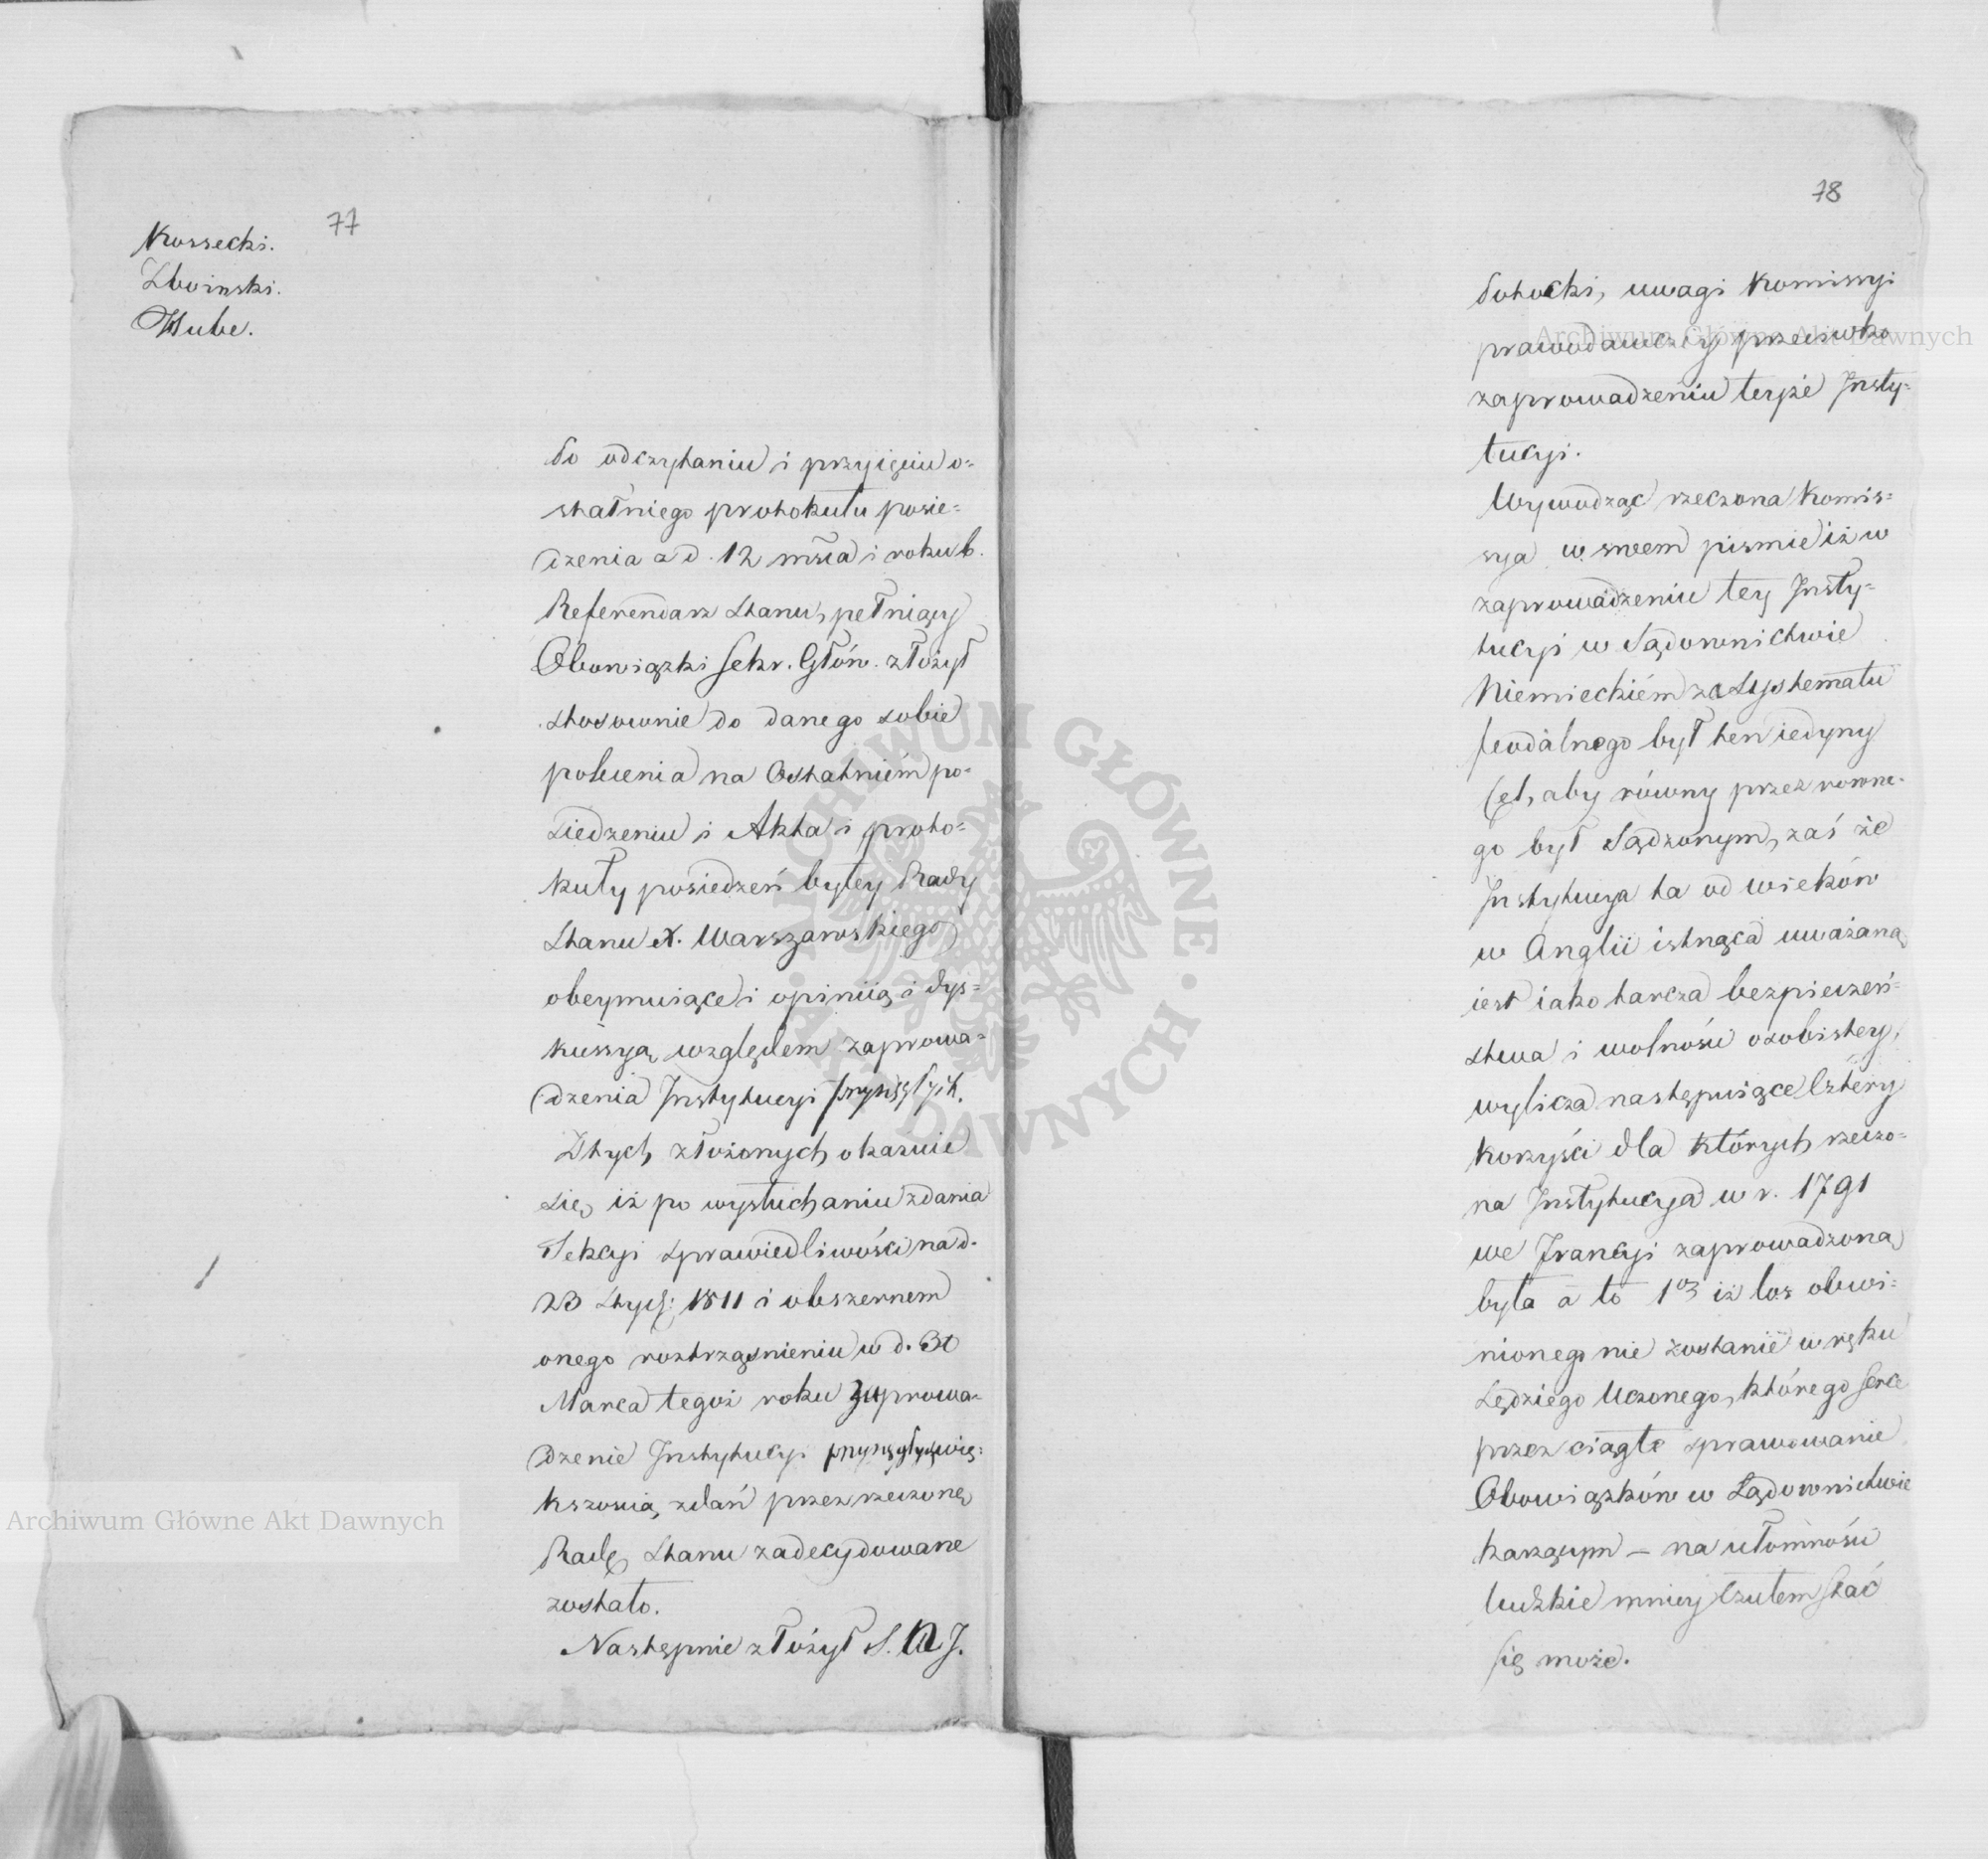 77
Kossecki.
Zboinski.
Hube.
Po odczytaniu i przyięciu o=
statniego protokułu posie=
dzenia z d. 12 mca i roku b.
Referendarz Stanu, pełniący
Obowiązki Sekr. Głów. złożył
stosownie do danego sobie
polecenia na Ostatniém po=
siedzeniu i Akta i proto=
kuły posiedzeń byłey Rady
Stanu X. Warszawskiego
obeymuiące i opiniią i dys=
kussyą względem zaprowa=
dzenia Instytucyi przysięgłych.
Z tych złożonych okazuie
się, iż po wysłuchaniu zdania
Sekcyi sprawiedliwości na d.
23 Stycz: 1811 i obszernem
onego roztrząśnieniu w d. 30
Marca tegoż roku zaprowa=
dzenie Instytucyi przysięgłych wię=
kszością zdań przez rzeczoną
Radę Stanu zadecydowane
zostało.
Następnie złożył S. W. J.
78
Potocki, uwagi Komissyi
prawodawczey przeciwko
zaprowadzeniu teyże Insty=
tucyi.
Wywodząc rzeczona Komis=
sya w swem pismie iż w
zaprowadzeniu tey Insty=
tucyi w Sądownictwie
Niemieckiém za Systematu
feodalnego był ten iedyny
Cel, aby równy przez rowne=
go był Sądzonym, zaś że
Instytucya ta od wieków
w Anglii istnąca uważana
iest iako tarcza bezpieczeń=
stwa i wolności osobistey,
wylicza następuiące Cztery
korzyści dla których rzeczo=
na Instytucya w r. 1791
we Francyi zaprowadzona
była a to 1o iż los obwi=
nionego nie zostanie w ręku
Sędziego Uczonego, którego Serce
przez ciągłe sprawowanie
Obowiązków w Sądownictwie
karzącym – na ułomności
ludzkie mniey Czułem Stać
się może.
Archiwum Główne Akt Dawnych
Archiwum Główne Akt Dawnych
ARCHIWUM GŁÓWNE AKT DAWNYCH